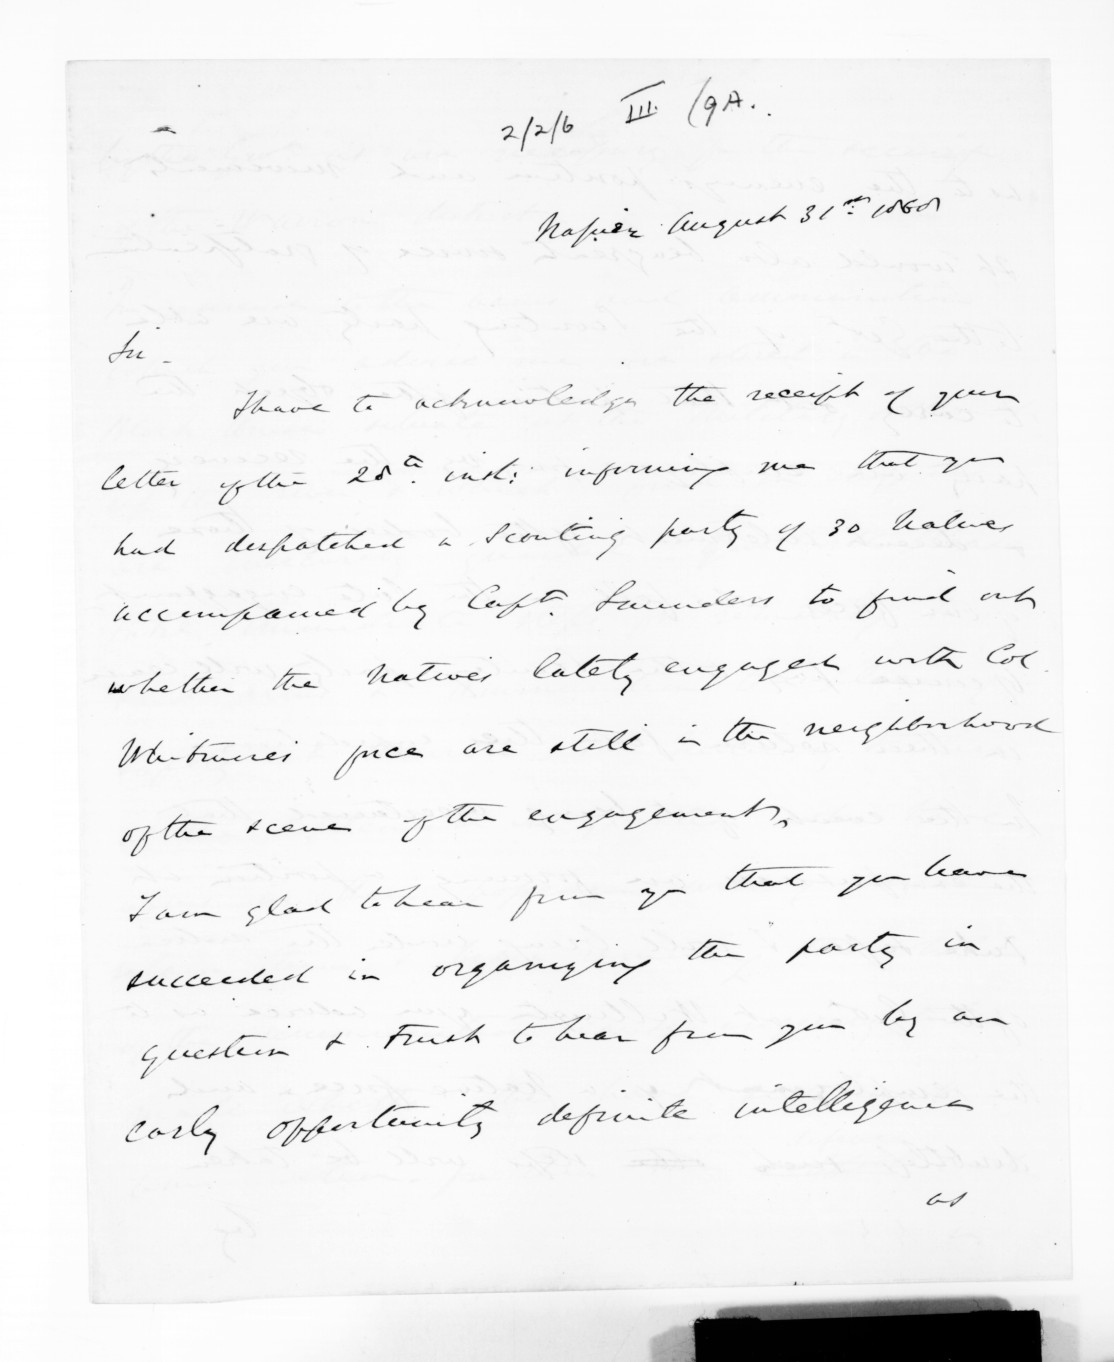 2/2/6 III (9A.
Napier August 31st 1868
Sir -
I have to acknowledge the receipt of your
letter of the 28th. inst: informing me that you
had despatched a Scouting party of 30 Natives
accompanied by Capt. Saunders to find out
whether the Natives lately engaged with Col.
Whitmore's force are still in the neighborhood
of the scene of the engagement,
I am glad to hear from you that you have
succeeded in organizing the party in
question & trust to hear from you by an
early opportunity definite intelligence
as